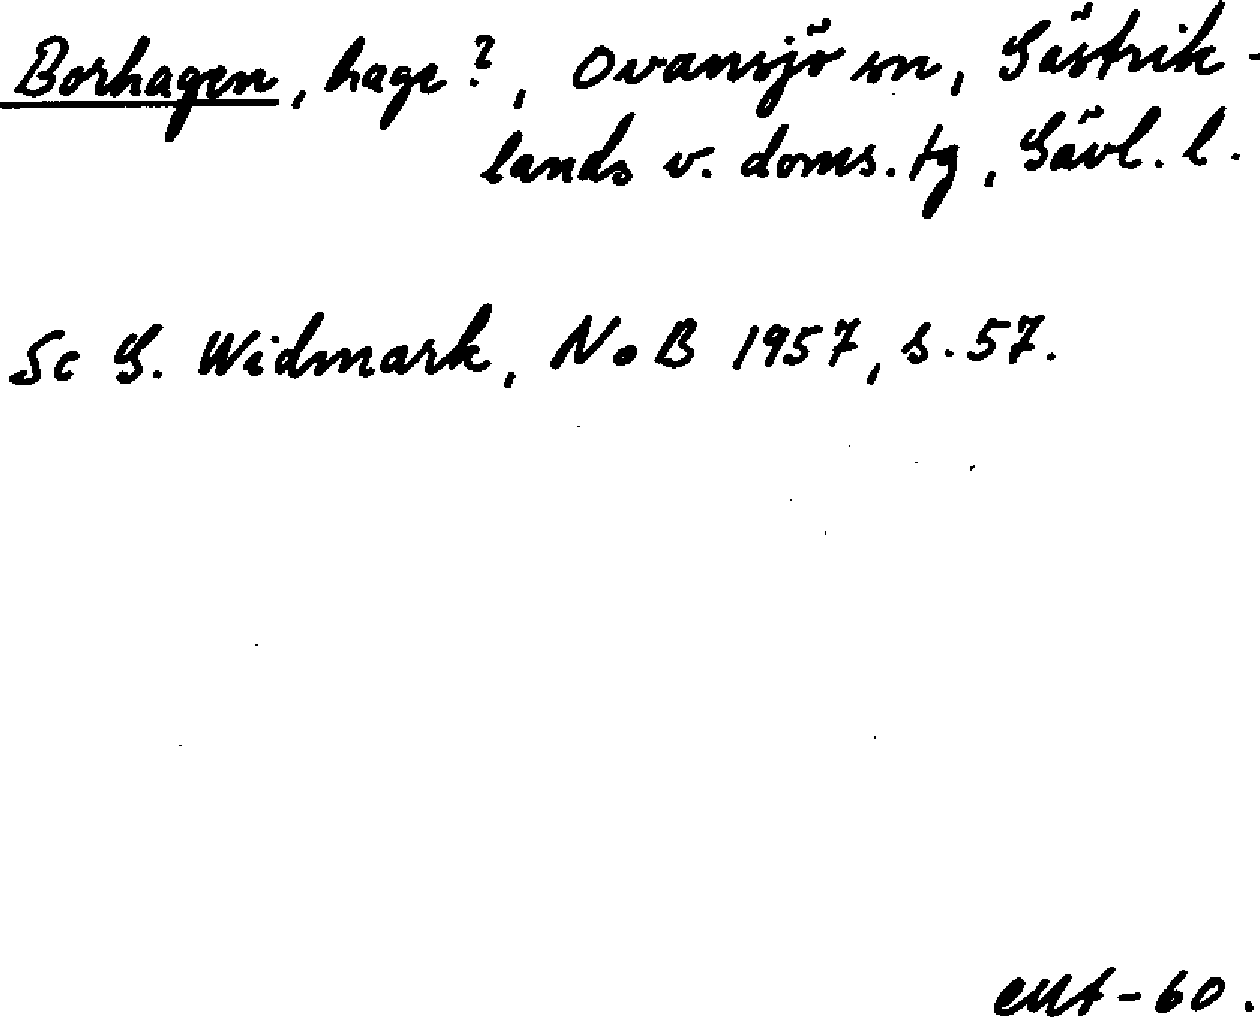 Borhagen, hage?, Ovansjö sn, Gästrik-
lands v. doms.tg, Gävl. l.
Se G. Widmark, NoB 1957, s. 57.
-60.